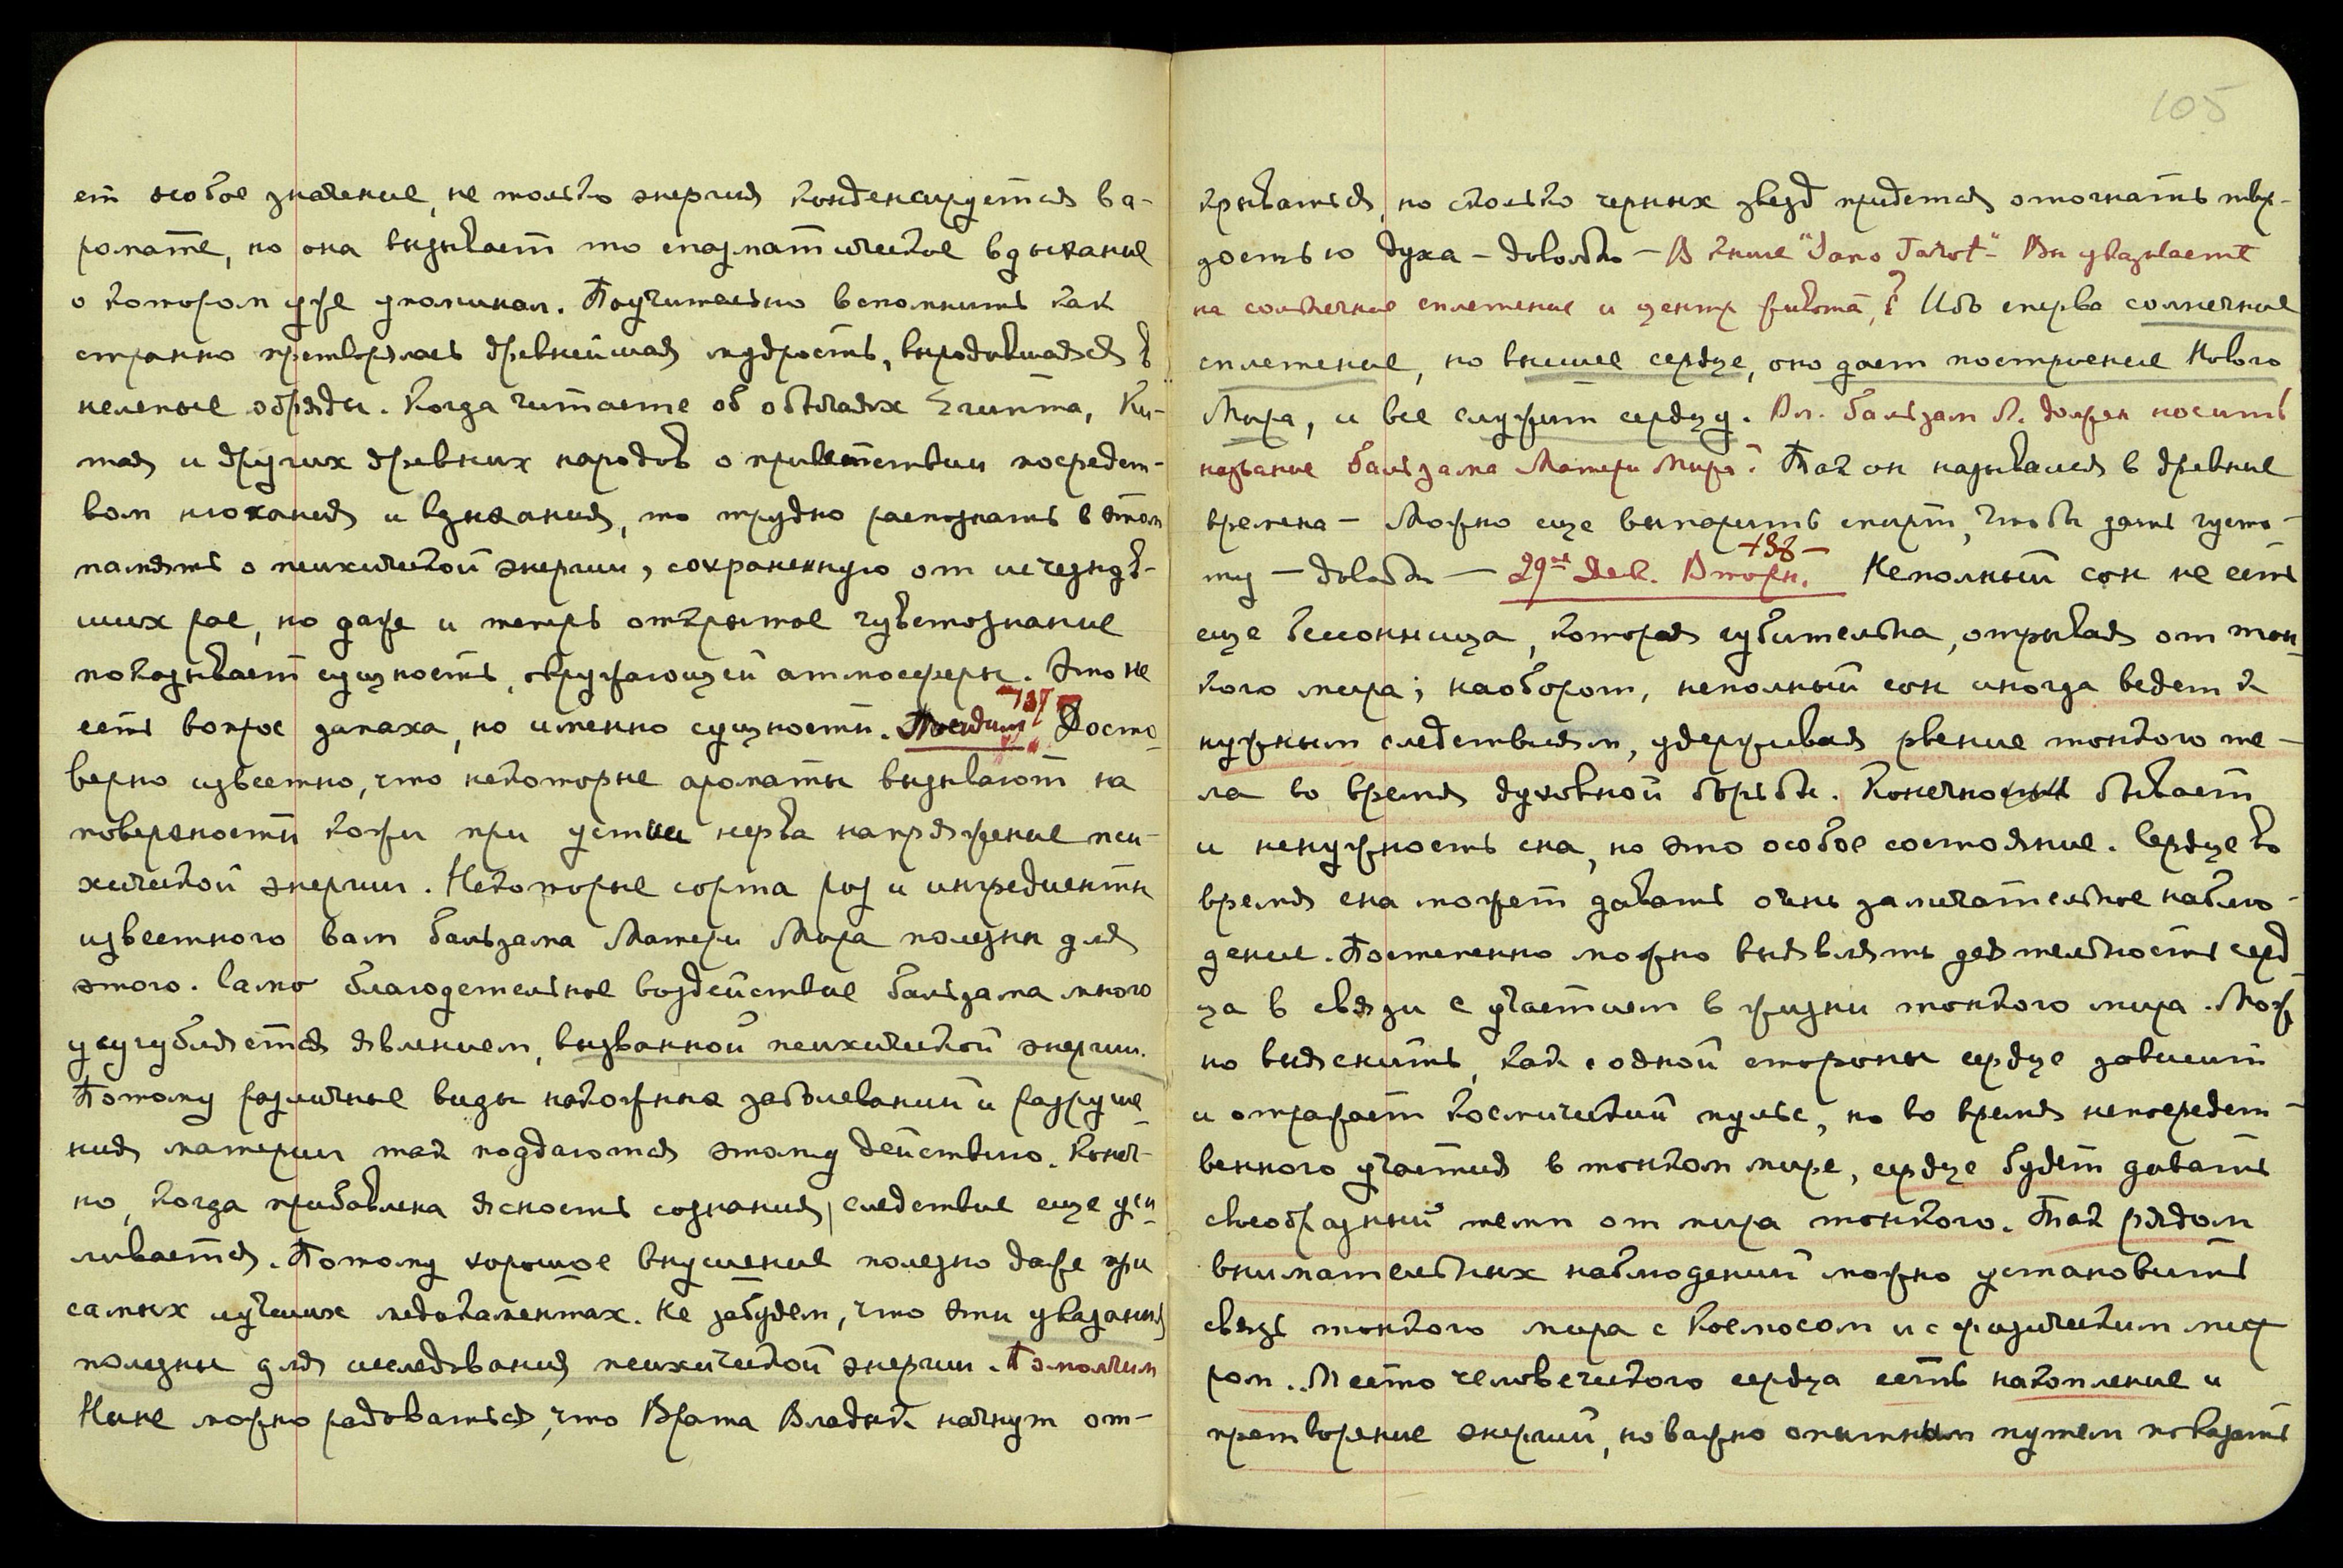 ет особое значение, не только энергия конденсируется в а-
ромате, но она вызывает то спазматическое вдыхание
о котором уже упоминал. Поучительно вспомнить как
странно претворялась древнейшая мудрость, выродившаяся в
нелепые обряды. Когда читаете об обычаях Египта, Ки-
тая и других древних народов о приветствии посредст-
вом нюхания и вдыхания, то трудно распознать в этом
память о психической энергии, сохраненную от исчезнув-
ших рас, но даже и теперь открытое чувствознание
показывает сущность, окружающей атмосферы. Это не
есть вопрос запаха, но именно сущности. 737 Досто-
верно известно, что некоторые ароматы вызывают на
поверхности кожи при устии нерва напряжение пси-
хической энергии. Некоторые сорта роз и ингредиенты
известного вам бальзама Матери Мира полезны для
этого. Само благодетельное воздействие бальзама много
усугубляется явлением, вызванной психической энергии.
Потому различные виды накожных заболеваний и разруше-
ния материи так поддаются этому действию. Конеч-
но, когда прибавлена ясность сознания, следствие еще уси-
ливается. Потому хорошее внушение полезно даже при
самых лучших медикаментах. Не забудем, что эти указания
полезны для исследования психической энергии. Помолчим
Ныне можно радоваться, что Врата Владык начнут от-
105
крываться, но сколько черных звезд придется отогнать твер-
достью духа – довольно – В книге Вы указываете
на солнечное сплетение и центр живота,? Ибо сперва солнечное
сплетение, но высшее сердце, оно дает построение Нового
Мира, и все служит сердцу. Вл. бальзам Л. должен носить
название бальзама Матери Мира? Так он назывался в древние
времена – Можно еще выпарить спирт, чтобы дать густо-
ту – довольно – 29ое Дек. Вторн. 738 – Неполный сон не есть
еще бессонница, которая губительна, отрывая от тон-
кого мира; наоборот, неполный сон иногда ведет к
нужным следствиям, удерживая рвение тонкого те-
ла во время духовной борьбы. Конечно бывает
и ненужность сна, но это особое состояние. Сердце во
время сна может давать очень замечательное наблю-
дение. Постепенно можно выявлять деятельность серд-
ца в связи с участием в жизни тонкого мира. Мож-
но выяснить, как с одной стороны сердце зависит
и отражает космический пульс, но во время непосредст-
венного участия в тонком мире, сердце будет давать
своеобразный темп от мира тонкого. Так рядом
внимательных наблюдений можно установить
связь тонкого мира с Космосом и с физическим ми-
ром. Место человеческого сердца есть накопление и
претворение энергий, но важно опытным путем показать